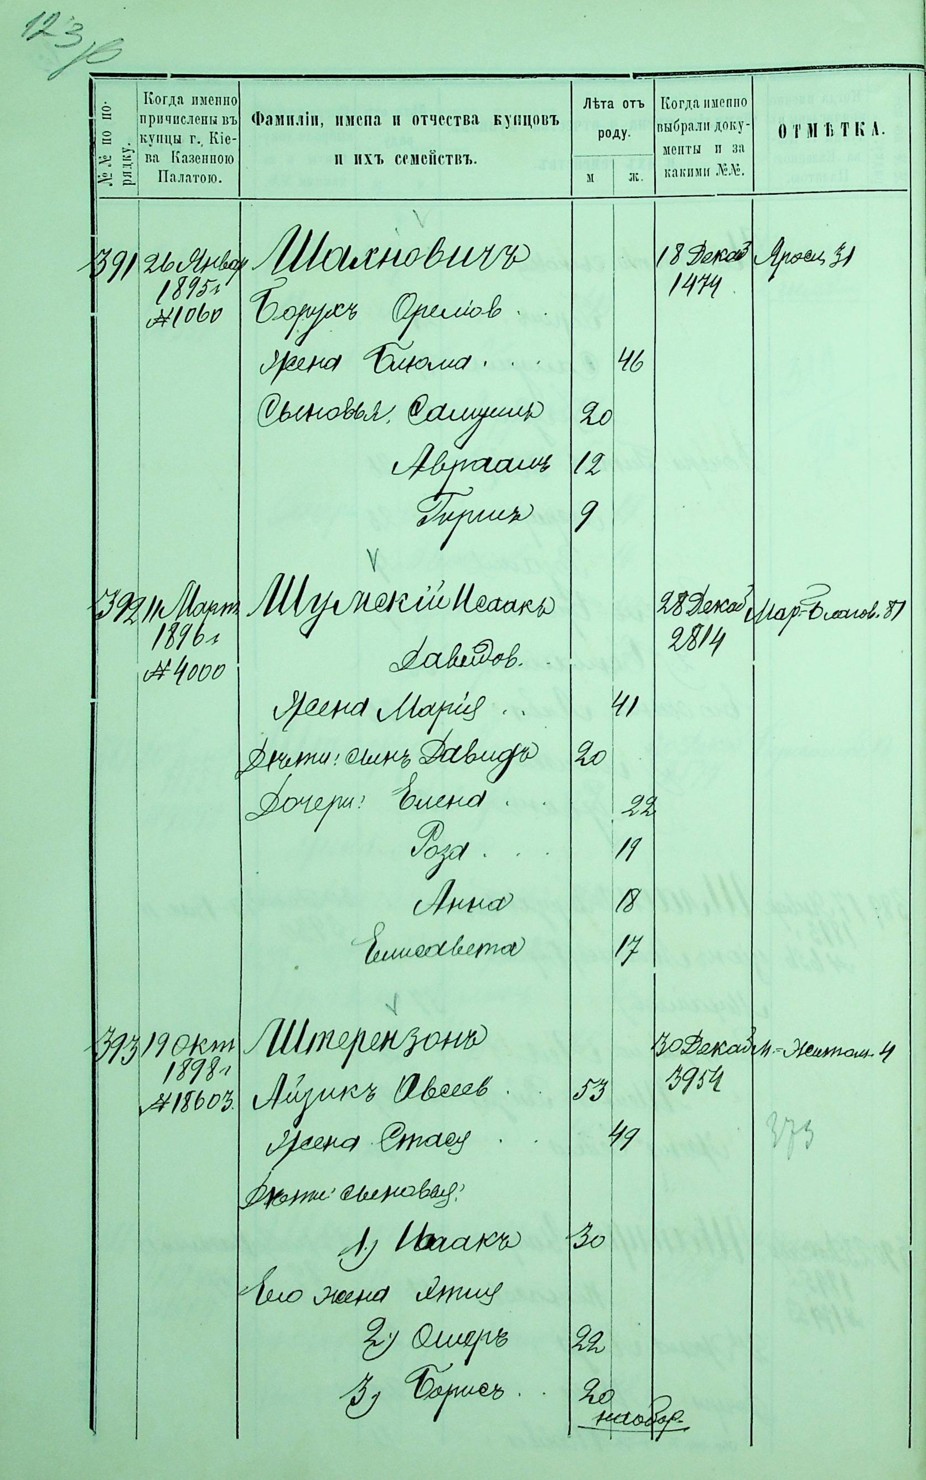 123
№№ по порядку.
Когда именно
причислены въ
купцы г. Кіе-
ва Казенною
Палатою.
Фамиліи, имена и отчества купцовъ
и ихъ семействъ.
Лѣта отъ
роду.
м
ж.
Когда именно
выбрали доку-
менты и за
какими №№.
ОТМѢТКА.
391 26 Январ Шахновичъ 18 Декаб Яросл 31
1895 г 1474
№ 1060 Борухъ
Жена Блюма 46
Сыновья: Самуилъ 20
Авраамъ 12
Гиршъ 9
392 11 Март Шумскій Исаакъ 28 Декаб Мар-Благов. 81
1896 г 2814
№ 4000 Давидов.
Жена Марія 41
Дѣти: сынъ Давидъ 20
Дочери: Елена 22
Роза 19
Анна 18
Елисавета 17
393 19 Окт Штерензонъ 30 Декаб М.-Житом. 4
1898 г 3954
№ 18603 Айзикъ Овсеев 53
Жена Стася 49
373
Дѣти: сыновья:
1) Исаакъ 30
Его жена
2) Ошеръ 22
3) Борисъ 20